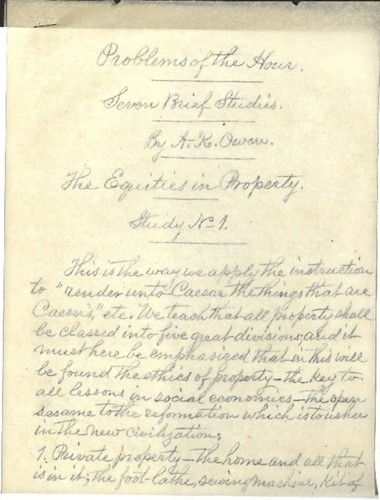 Problems of the Hour.
Seven Brief Studies.
By A. K. Owen.
The Equities in Property.
Study No 1.
This is the way we apply the instruction
to "render unto Caesar the things that are
Caesar's," etc. We teach that all property shall
be classed into five great divisions; and it
must here be emphasized that in this will
be found the ethics of property—the key to
all lessons in social economics—the open
sesame to the reformation which is to usher
in the new civilization;
1. Private property—the home and all that
is in it; the foot-lathe, sewing machine, kit of